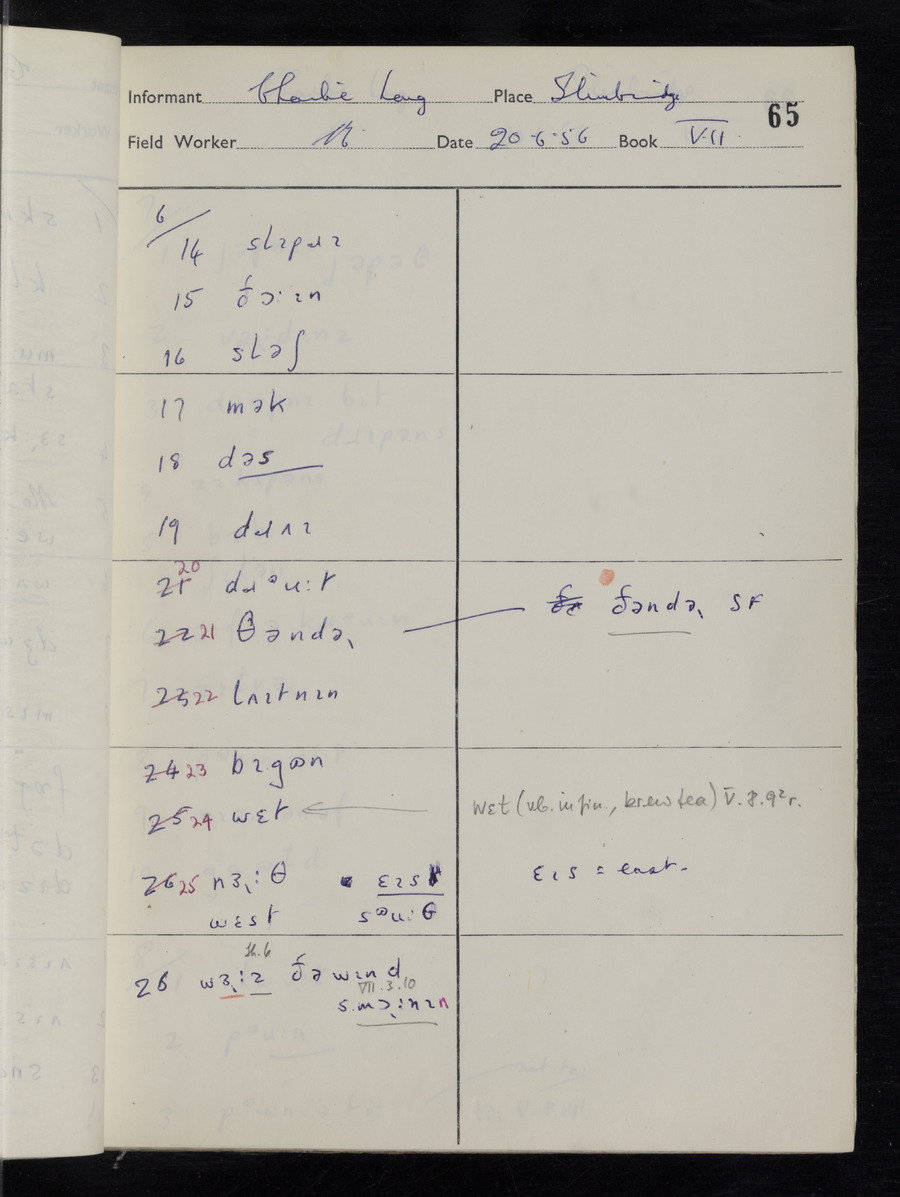 Informant Charlie Long Place Slimbridge
65
Field Worker Date 20·6·56 Book VII
6/
14 slɪpəɹɪ
15 ðɔːɪn
16 sləʃ
17 mək
18 dəs
19 dɹʌɪ
21 20 dɹəuːt
22 21 θəndə˞ ðəndə˞ SF
23 22 lʌɪtnɪn
24 23 bɪgɒn
25 24 wɛt ← wɛt (vb. infin., brew tea) V.8.9
26 25 nɜ˞ːθ ɛɪs ɛɪs = east.
wɛst səuːθ
26 wɜ˞ːɪ ðə wɪnd
VII.3.10
s.mɔ˞ːnɪn